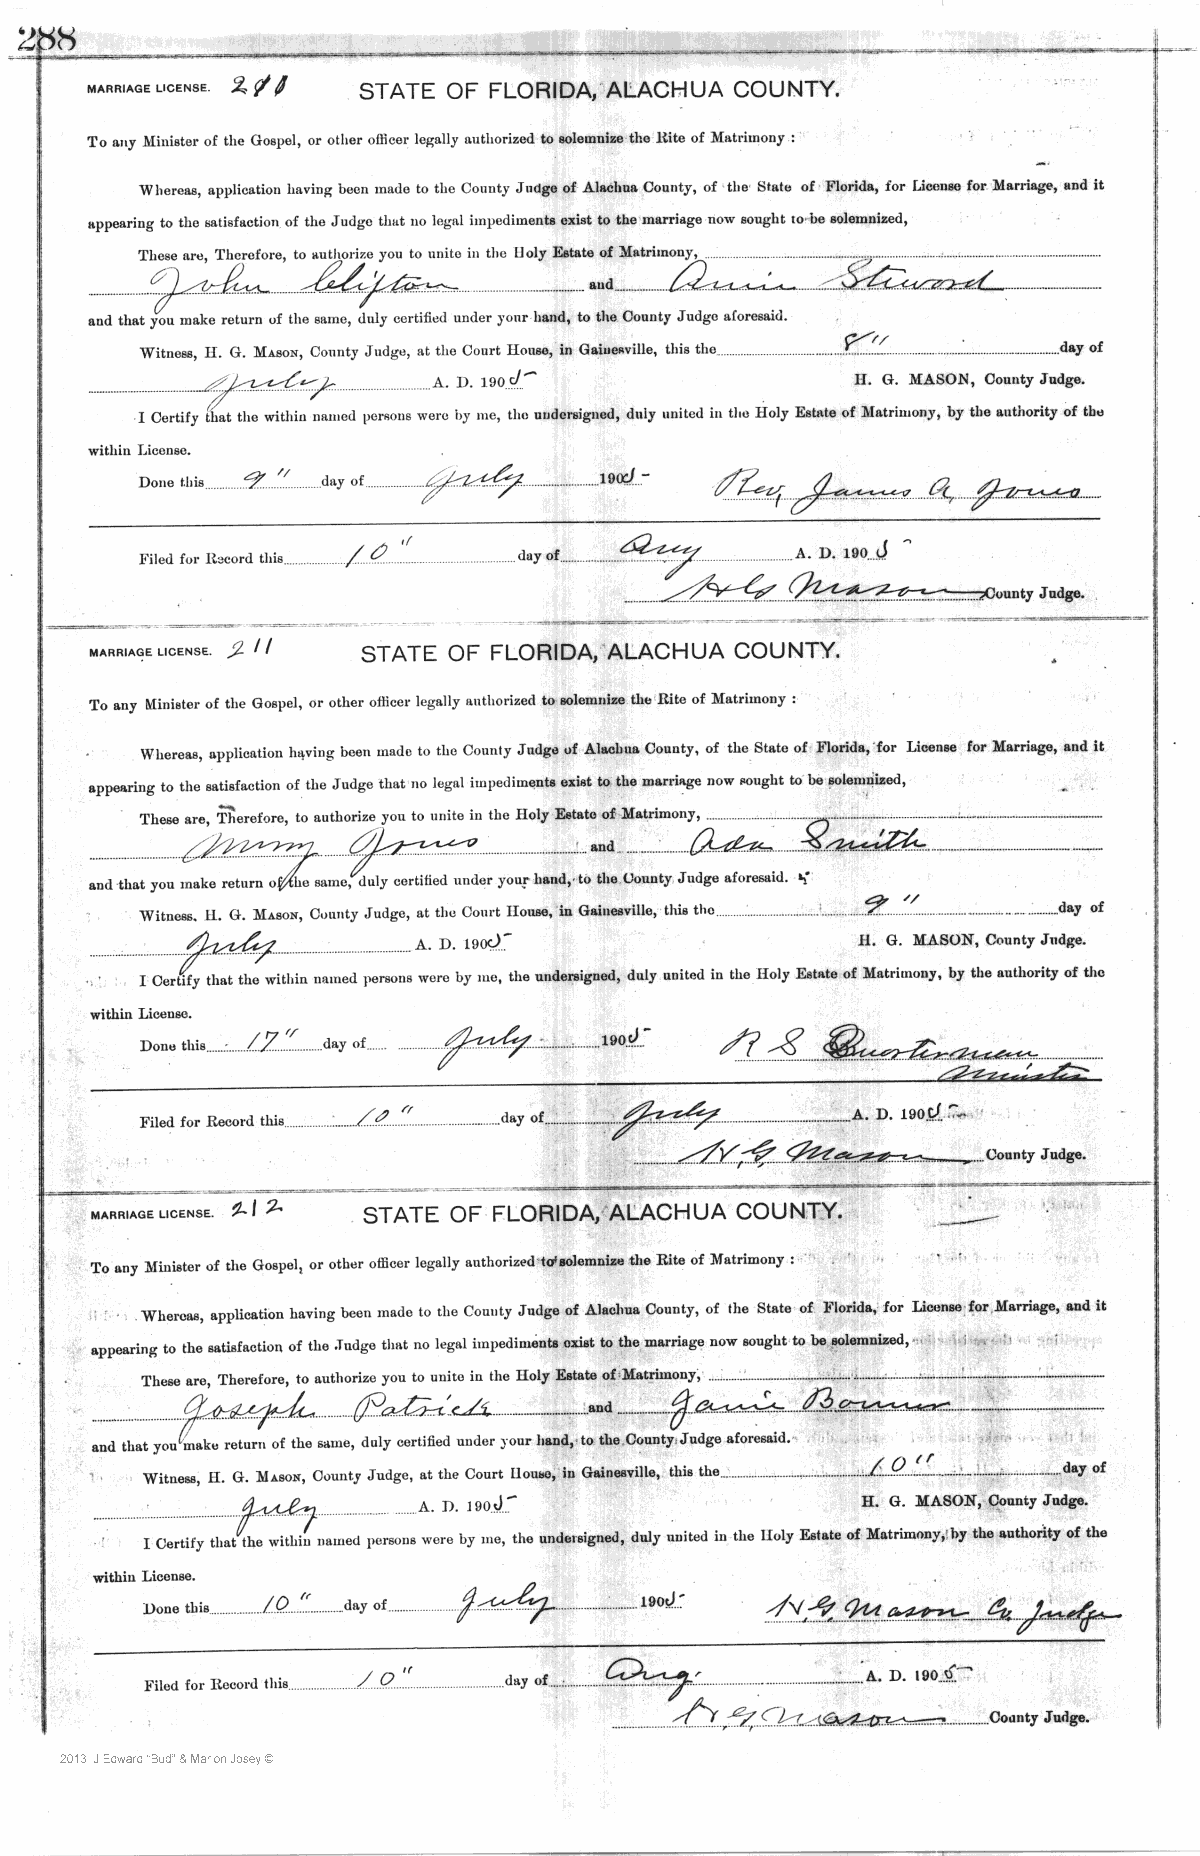 288
MARRIAGE LICENSE. 210 STATE OF FLORIDA, ALACHUA COUNTY.
To any Minister of the Gospel, or other officer legally authorized to solemnize the Rite of Matrimony :
Whereas, application having been made to the County Judge of Alachua County, of the State of Florida, for License for Marriage, and it
appearing to the satisfaction of the Judge that no legal impediments exist to the marriage now sought to be solemnized,
These are, Therefore, to authorize you to unite in the Holy Estate of Matrimony,
John Clifton and Annie Steword
and that you make return of the same, duly certified under your hand, to the County Judge aforesaid.
Witness, H. G. MASON, County Judge, at the Court House, in Gainesville, this the 8" day of
July A. D. 1905 H. G. MASON, County Judge.
I Certify that the within named persons were by me, the undersigned, duly united in the Holy Estate of Matrimony, by the authority of the
within License.
Done this 9" day of July 1905 Rev. James A. Jones
Filed for Record this 10" day of Aug A. D. 1905
H G Mason County Judge.
MARRIAGE LICENSE. 211 STATE OF FLORIDA, ALACHUA COUNTY.
To any Minister of the Gospel, or other officer legally authorized to solemnize the Rite of Matrimony :
Whereas, application having been made to the County Judge of Alachua County, of the State of Florida, for License for Marriage, and it
appearing to the satisfaction of the Judge that no legal impediments exist to the marriage now sought to be solemnized,
These are, Therefore, to authorize you to unite in the Holy Estate of Matrimony,
Jones and Ada Smith
and that you make return of the same, duly certified under your hand, to the County Judge aforesaid.
Witness, H. G. MASON, County Judge, at the Court House, in Gainesville, this the 9" day of
July A. D. 1905 H. G. MASON, County Judge.
I Certify that the within named persons were by me, the undersigned, duly united in the Holy Estate of Matrimony, by the authority of the
within License.
Done this 17" day of July 1905 R S Quarterman
Minister
Filed for Record this 10" day of July A. D. 1905
H. G. Mason County Judge.
MARRIAGE LICENSE. 212 STATE OF FLORIDA, ALACHUA COUNTY.
To any Minister of the Gospel, or other officer legally authorized to solemnize the Rite of Matrimony :
Whereas, application having been made to the County Judge of Alachua County, of the State of Florida, for License for Marriage, and it
appearing to the satisfaction of the Judge that no legal impediments exist to the marriage now sought to be solemnized,
These are, Therefore, to authorize you to unite in the Holy Estate of Matrimony,
Joseph Patrick and Janie Bonner
and that you make return of the same, duly certified under your hand, to the County Judge aforesaid.
Witness, H. G. MASON, County Judge, at the Court House, in Gainesville, this the 10" day of
July A. D. 1905 H. G. MASON, County Judge.
I Certify that the within named persons were by me, the undersigned, duly united in the Holy Estate of Matrimony, by the authority of the
within License.
Done this 10" day of July 1905 H. G. Mason Co. Judge
Filed for Record this 10" day of Aug. A. D. 1905
H. G. Mason County Judge.
2013 J Edward "Bud" & Marion Josey ©